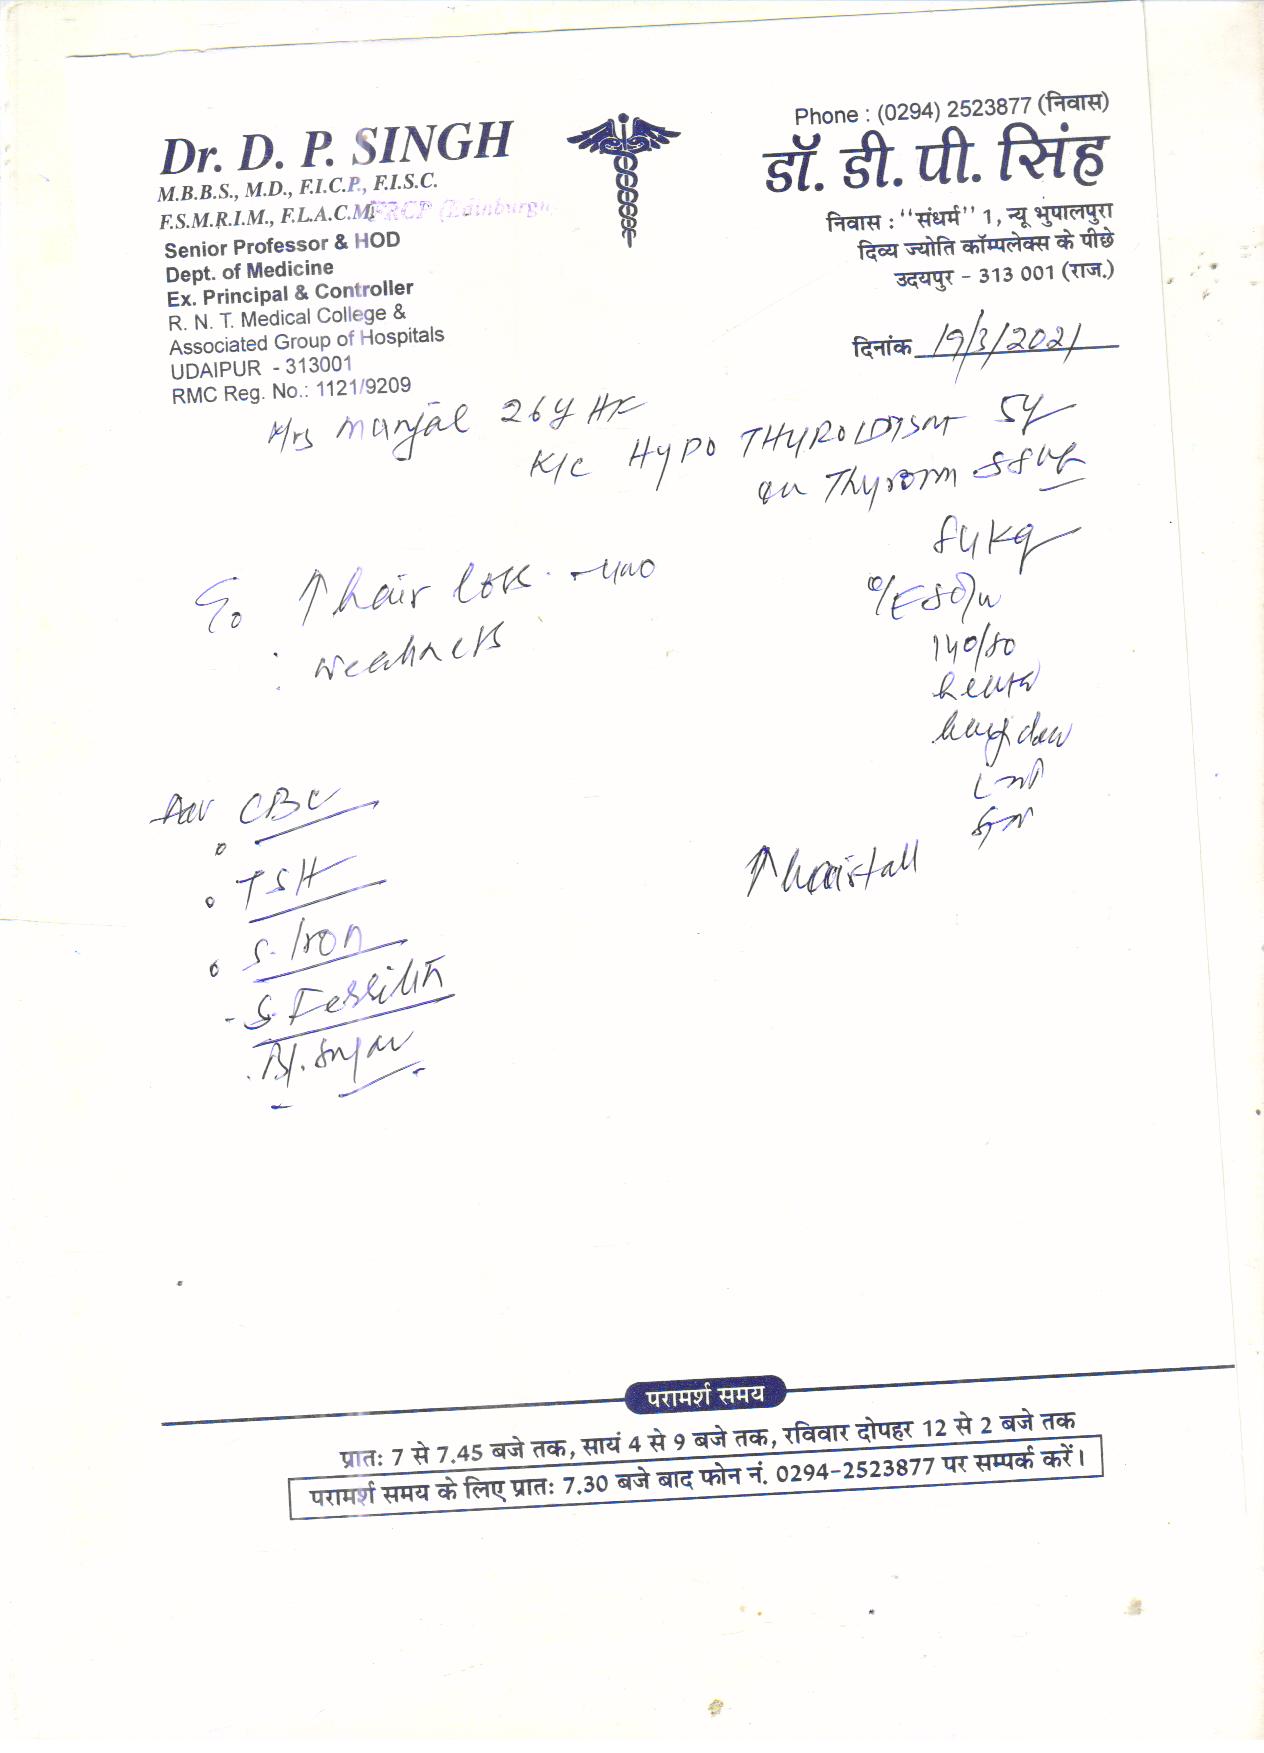 Phone : (0294) 2523877 (निवास)
Dr. D. P. SINGH
डॉ. डी. पी. सिंह
M.B.B.S., M.D., F.I.C.P., F.I.S.C.
F.S.M.R.I.M., F.L.A.C.M. FRCP (Edinburgh)
Senior Professor & HOD
Dept. of Medicine
Ex. Principal & Controller
R. N. T. Medical College &
Associated Group of Hospitals
UDAIPUR - 313001
RMC Reg. No.: 1121/9209
निवास : ‘‘संधर्म’’ 1, न्यू भुपालपुरा
दिव्य ज्योति कॉम्पलेक्स के पीछे
उदयपुर - 313 001 (राज.)
दिनांक 19/3/2021
Mrs 26y
K/C HYPO THYROIDISM 5y
on Thyronm
84 kg
140/80
↑ hair loss
weakness
Adv CBC
TSH
S. Iron
S. Ferritin
Bl. Sugar
↑ hairfall
परामर्श समय
प्रातः 7 से 7.45 बजे तक, सायं 4 से 9 बजे तक, रविवार दोपहर 12 से 2 बजे तक
परामर्श समय के लिए प्रातः 7.30 बजे बाद फोन नं. 0294-2523877 पर सम्पर्क करें।